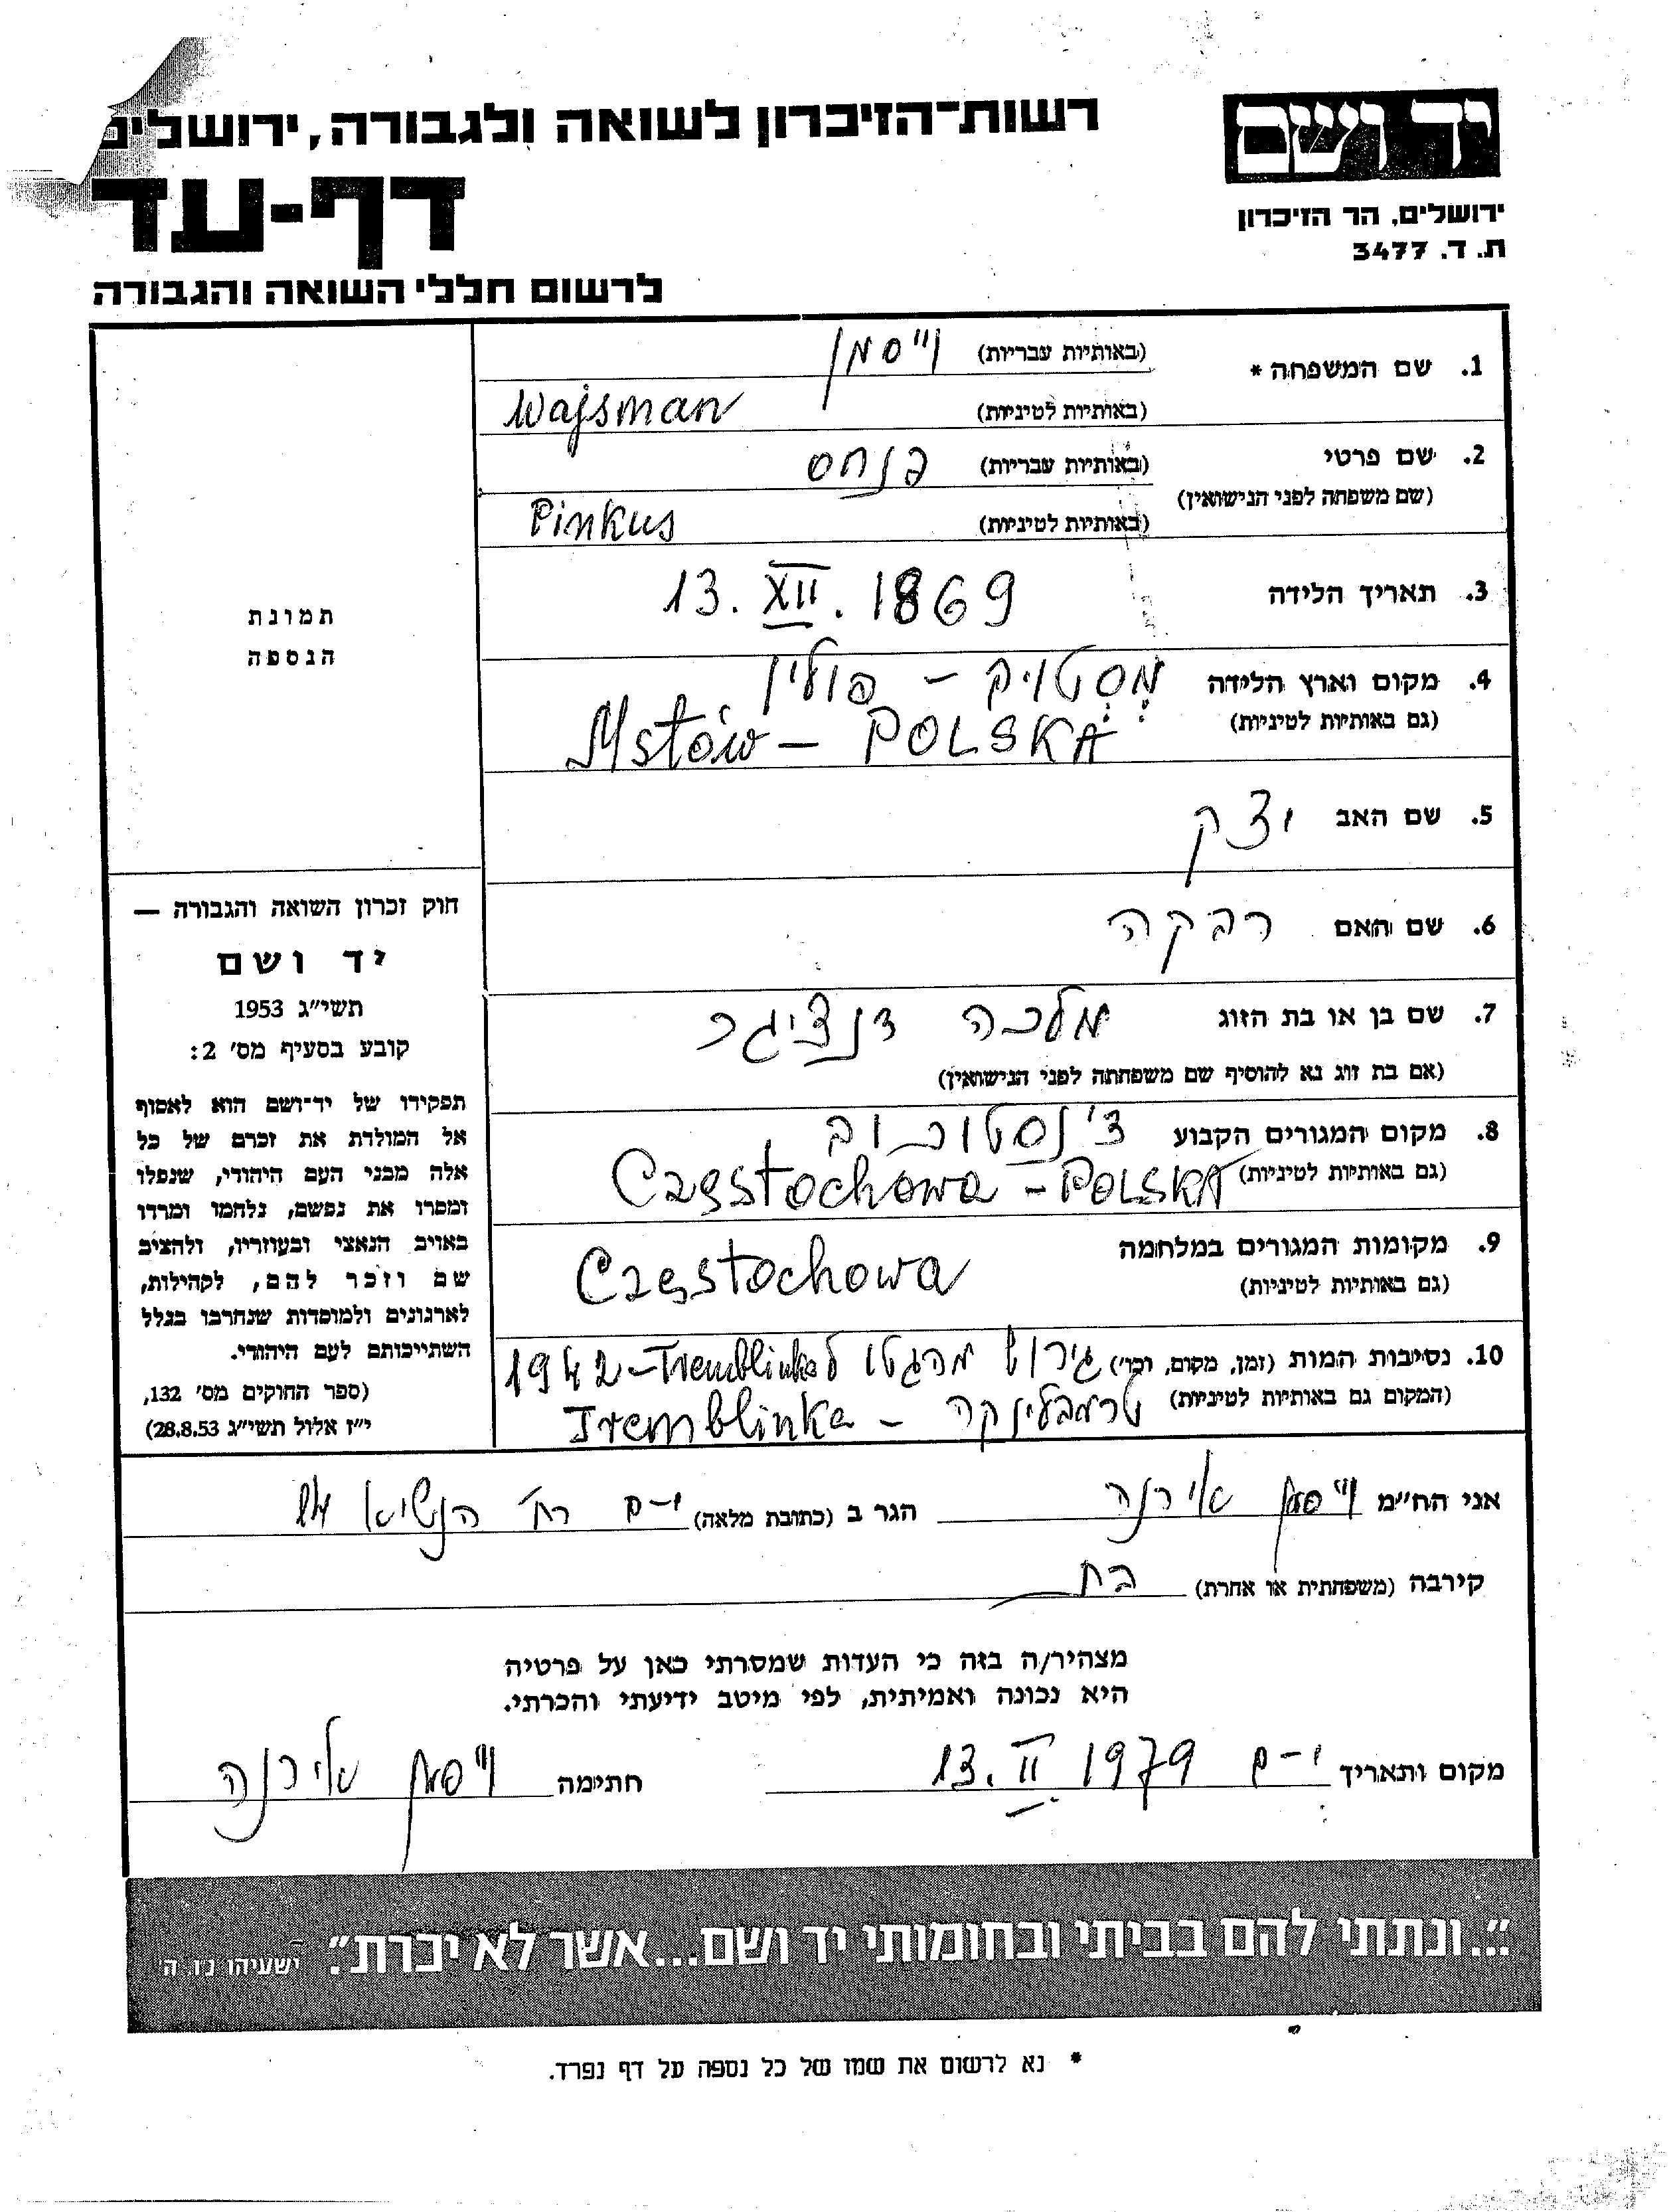 יד ושם
רשות־הזיכרון לשואה ולגבורה, ירושלים
ירושלים, הר הזיכרון
ת. ד. 3477
דף-עד
לרשום חללי השואה והגבורה
1. שם המשפחה * (באותיות עבריות) וייסמן
(באותיות לטיניות) Wajsman
2. שם פרטי (באותיות עבריות) פנחס
(שם משפחה לפני הנישואין)
(באותיות לטיניות) Pinkus
3. תאריך הלידה 13. XII. 1869
4. מקום וארץ הלידה מסטויב - פולין
(גם באותיות לטיניות) Mstów - POLSKA
5. שם האב יצק
6. שם האם רבקה
7. שם בן או בת הזוג מלכה דנציגר
(אם בת זוג נא להוסיף שם משפחתה לפני הנישואין)
8. מקום המגורים הקבוע צ'נסטוכוב
(גם באותיות לטיניות) Częstochowa - POLSKA
9. מקומות המגורים במלחמה
(גם באותיות לטיניות) Częstochowa
10. נסיבות המות (זמן, מקום, וכו') גירוש מהגטו ל Tremblinka - 1942
(המקום גם באותיות לטיניות) טרמבלינקה - Tremblinka
תמונת
הנספה
חוק זכרון השואה והגבורה —
יד ושם
תשי"ג 1953
קובע בסעיף מס' 2:
תפקידו של יד־ושם הוא לאסוף
אל המולדת את זכרם של כל
אלה מבני העם היהודי, שנפלו
ומסרו את נפשם, נלחמו ומרדו
באויב הנאצי ובעוזריו, ולהציב
שם וזכר להם, לקהילות,
לארגונים ולמוסדות שנחרבו בגלל
השתייכותם לעם היהודי.
(ספר החוקים מס' 132,
י"ז אלול תשי"ג 28.8.53)
אני הח"מ וייסמן אירנה הגר ב (כתובת מלאה) י-ם רח' הנשיא
קירבה (משפחתית או אחרת) בת
מצהיר/ה בזה כי העדות שמסרתי כאן על פרטיה
היא נכונה ואמיתית, לפי מיטב ידיעתי והכרתי.
מקום ותאריך י-ם 13. II 1979 חתימה וייסמן אירנה
"...ונתתי להם בביתי ובחומותי יד ושם...אשר לא יכרת." ישעיהו נ"ו, ה'
* נא לרשום את שמו של כל נספה על דף נפרד.